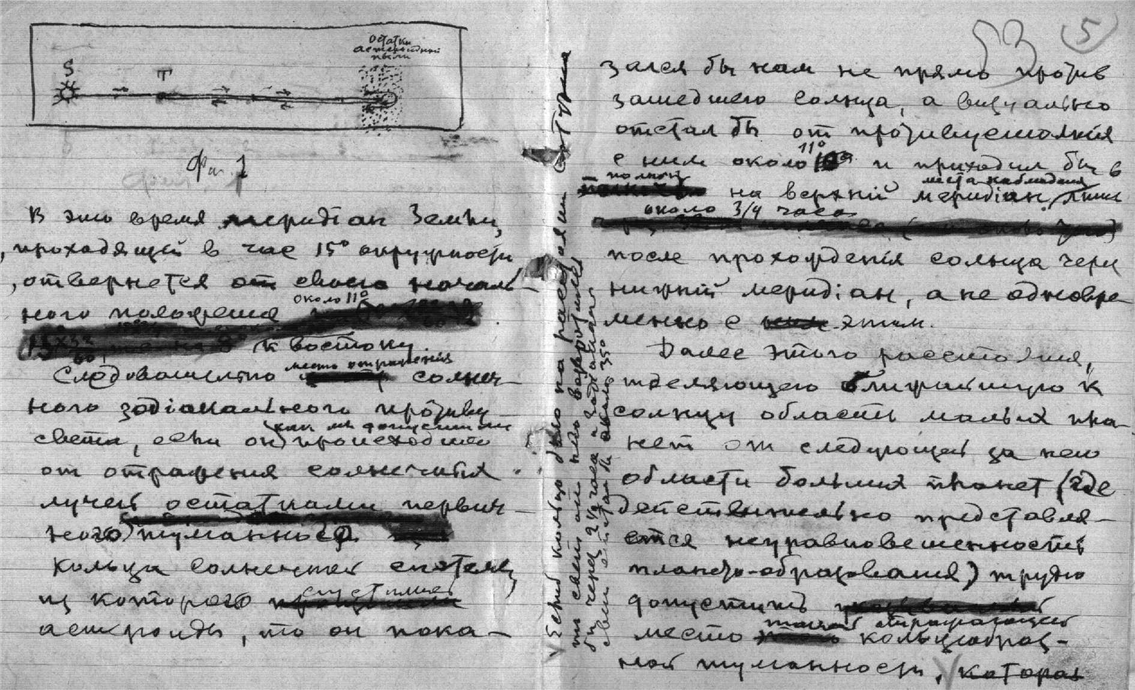 53 5
остатки
астероидной
пыли
S T
Фиг 1
В это время меридіан Земли,
проходящей в час 15° окружности
отвернется от своего началь-
ного положения около 11°
к востоку.
Следовательно место отражения солнеч-
ного зодіакального противу-
света, если он, как мы допустили, происходил
от отражения солнечных
лучей остатками первич-
ного туманного
кольца солнечной системы,
из которого сгустились
астероиды, то он пока-
Если б кольцо было на расстоянии Сатурна
то свет от него возвратился
бы через 2 1/2 часа и
свет отстал бы около 35°
зался бы нам не прямо против
зашедшего солнца, а визуально
отстал бы от противустояния
с ним около 11° и приходил бы в
полночь на верхній меридіан места наблюденія лишь
около 3/4 часа
после прохожденія солнца через
нижній меридіан, а не одновре-
менно с этим.
Далее этого расстояния,
отделяющего ближайшую к
солнцу область малых пла-
нет от следующей за нею
области больших планет (где
действительно представля-
ется неуравновешенность
плането-образования) трудно
допустить
место такой отражающей кольцеобраз-
ной туманности, которая